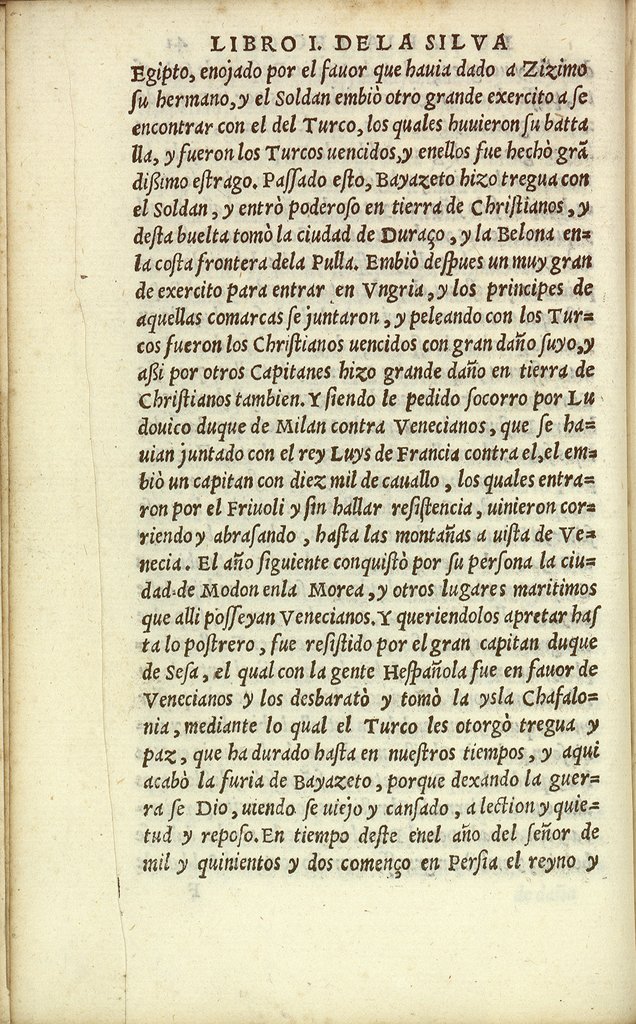 LIBRO I. DE LA SILVA
Egipto, enojado por el fauor que hauia dado a Zizimo
ſu hermano, y el Soldan embiò otro grande exercito a ſe
encontrar con el del Turco, los quales huuieron ſu batta
lla, y fueron los Turcos uencidos, y enellos fue hechò grã
dißimo eſtrago. Paſſado eſto, Bayazeto hizo tregua con
el Soldan, y entrò poderoſo en tierra de Chriſtianos, y
deſta buelta tomò la ciudad de Duraço, y la Belona en=
la coſta frontera dela Pulla. Embiò deſpues un muy gran
de exercito para entrar en Vngria, y los principes de
aquellas comarcas ſe juntaron, y peleando con los Tur=
cos fueron los Chriſtianos uencidos con gran daño ſuyo, y
aßi por otros Capitanes hizo grande daño en tierra de
Chriſtianos tambien. Y ſiendo le pedido ſocorro por Lu
douico duque de Milan contra Venecianos, que ſe ha=
uian juntado con el rey Luys de Francia contra el, el em=
biò un capitan con diez mil de cauallo, los quales entra=
ron por el Friuoli y ſin hallar reſiſtencia, uinieron cor=
riendo y abraſando, haſta las montañas a uiſta de Ve=
necia. El año ſiguiente conquiſtò por ſu perſona la ciu=
dad de Modon enla Morea, y otros lugares maritimos
que alli poſſeyan Venecianos. Y queriendolos apretar haſ
ta lo poſtrero, fue reſiſtido por el gran capitan duque
de Seſa, el qual con la gente Heſpañola fue en fauor de
Venecianos y los desbaratò y tomò la ysla Chafalo=
nia, mediante lo qual el Turco les otorgò tregua y
paz, que ha durado haſta en nueſtros tiempos, y aqui
acabò la furia de Bayazeto, porque dexando la guer=
ra ſe Dio, uiendo ſe uiejo y canſado, a lection y quie=
tud y repoſo. En tiempo deſte enel año del ſeñor de
mil y quinientos y dos començo en Perſia el reyno y